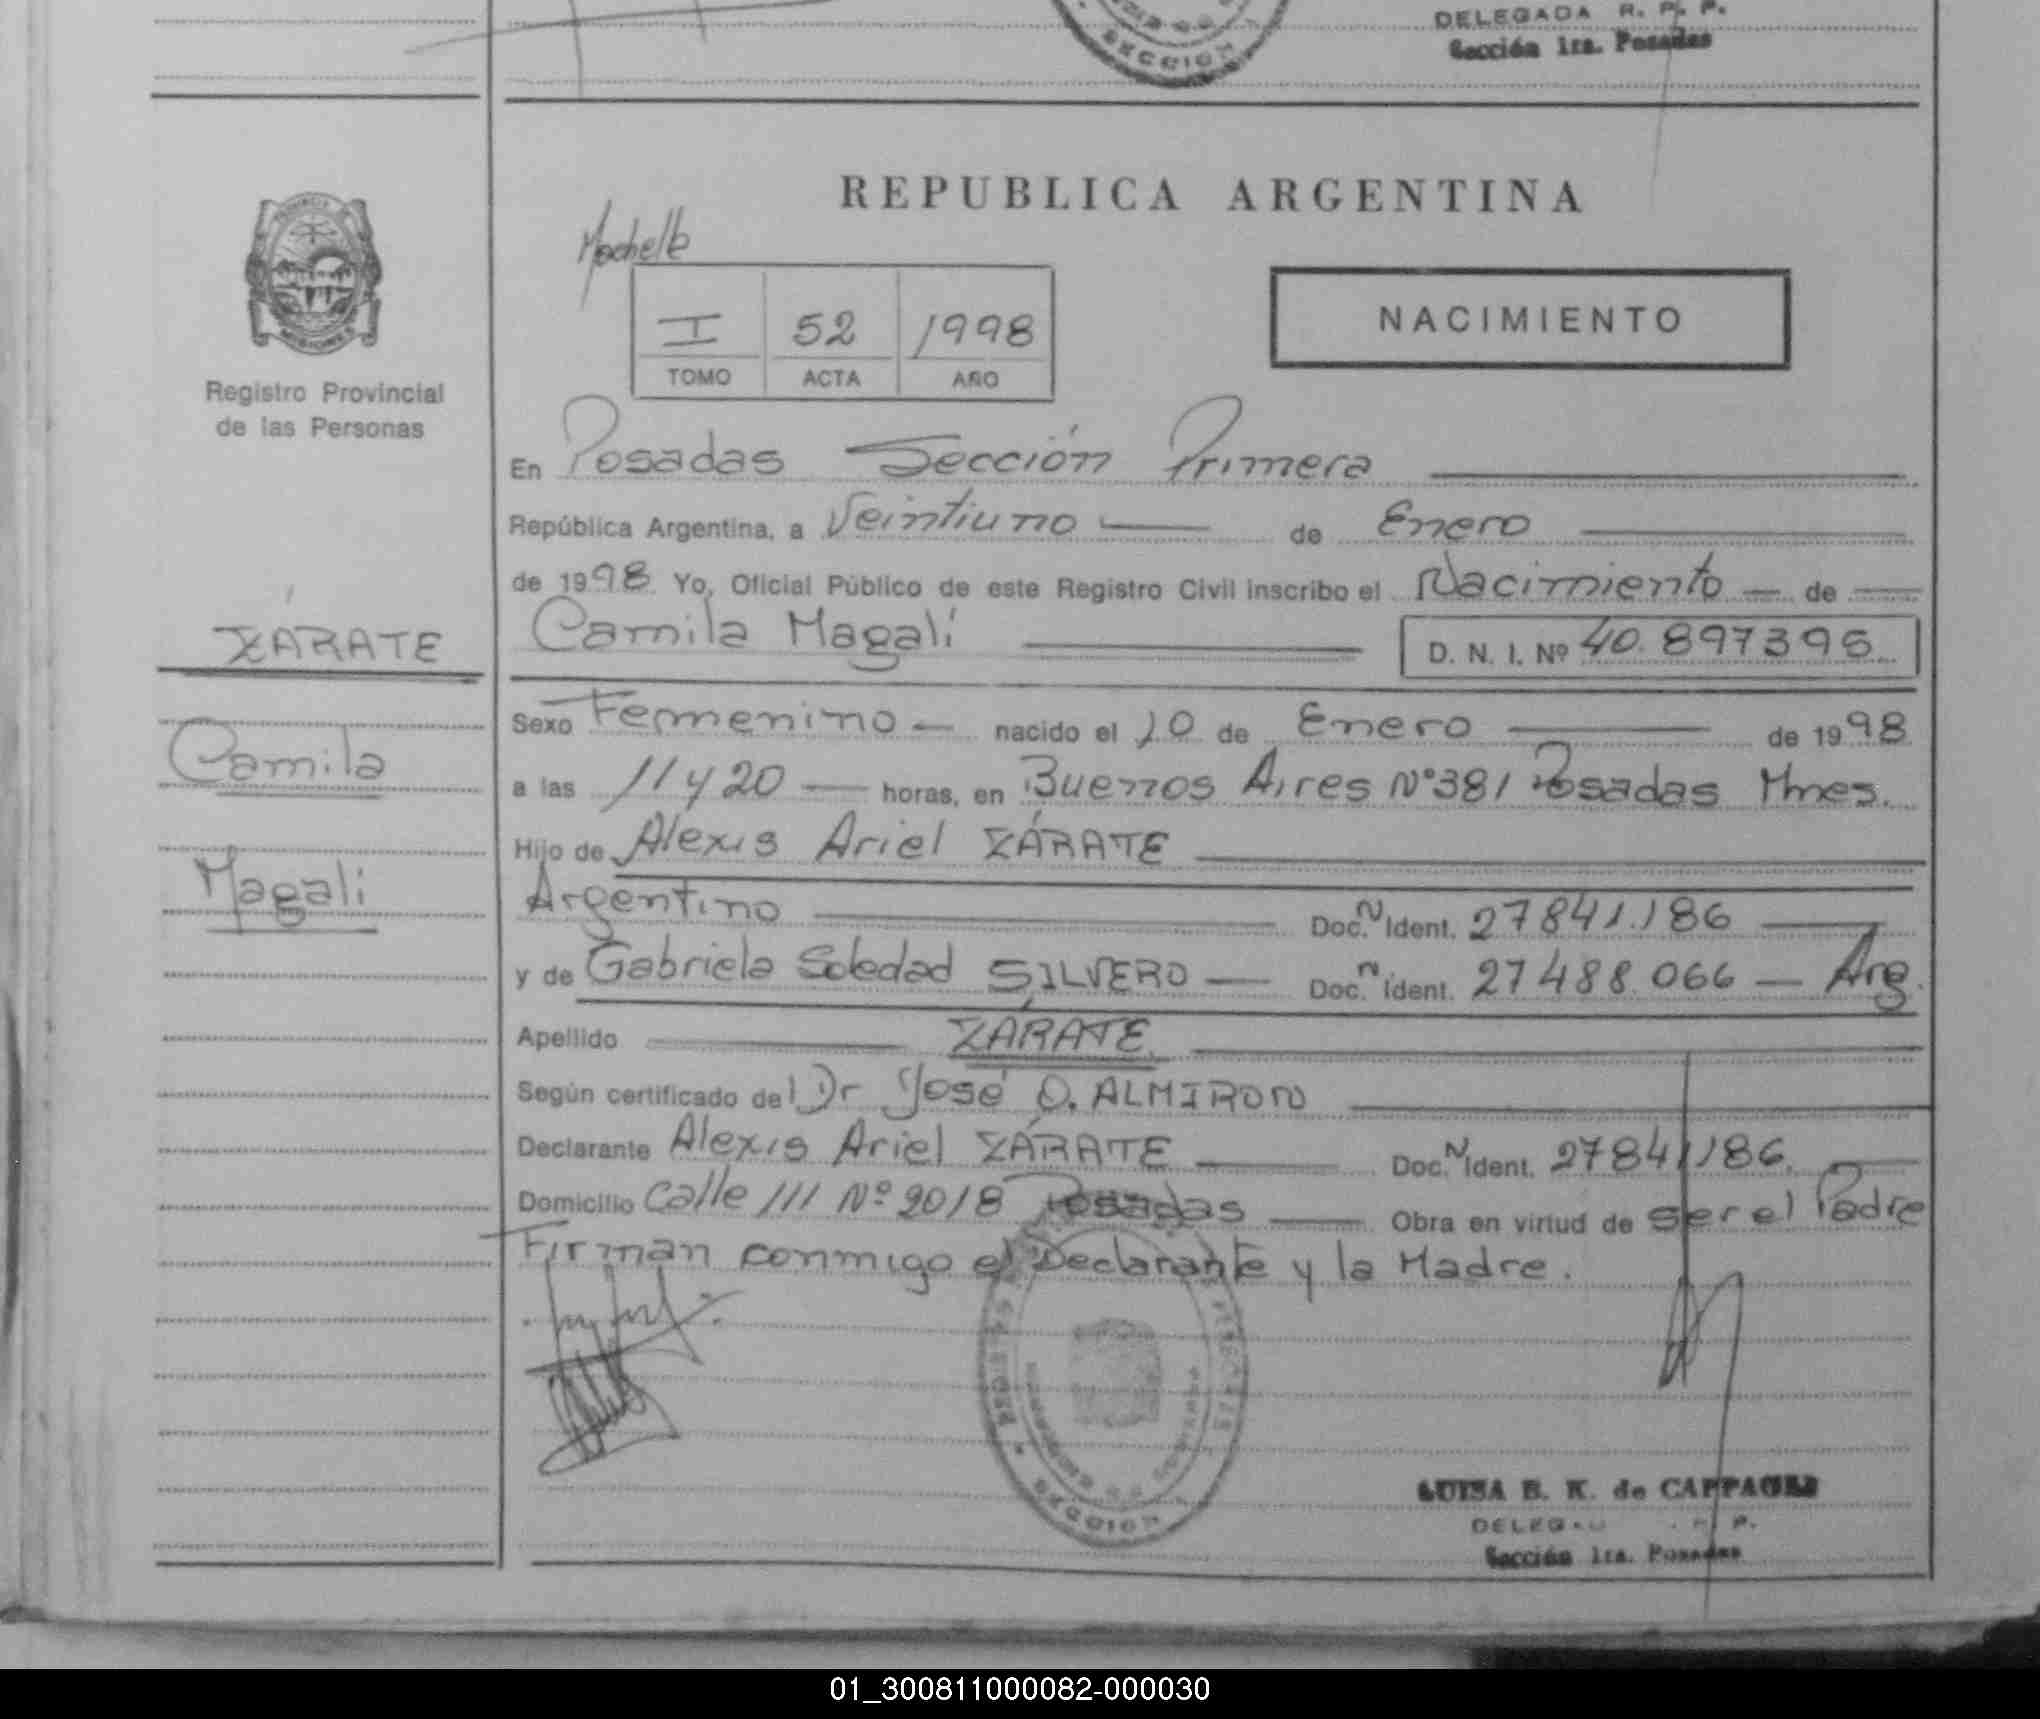 DELEGADA R. P. P.
Sección 1ra. Posadas
SECCION 1
REPUBLICA ARGENTINA
I 52 1998
TOMO ACTA AÑO
NACIMIENTO
Registro Provincial
de las Personas
En Posadas Sección Primera
República Argentina, a Veintiuno de Enero
de 1998 Yo, Oficial Público de este Registro Civil inscribo el Nacimiento de
Camila Magalí D. N. I. Nº 40.897395
ZÁRATE
Camila
Magali
Sexo Femenino nacido el 10 de Enero de 1998
a las 11 y 20 horas, en Buenos Aires Nº 381 Posadas Mnes.
Hijo de Alexis Ariel ZÁRATE
Argentino Doc. N Ident. 27841.186
y de Gabriela Soledad SILVERO Doc. N Ident. 27488.066 Arg.
Apellido ZÁRATE
Según certificado del Dr José O. ALMIRON
Declarante Alexis Ariel ZÁRATE Doc. N Ident. 27841186.
Domicilio Calle 111 Nº 2018 Posadas Obra en virtud de ser el Padre
Firman conmigo el Declarante y la Madre.
SECCION 1
LUISA B. K. de
Sección 1ra. Posadas
01_300811000082-000030